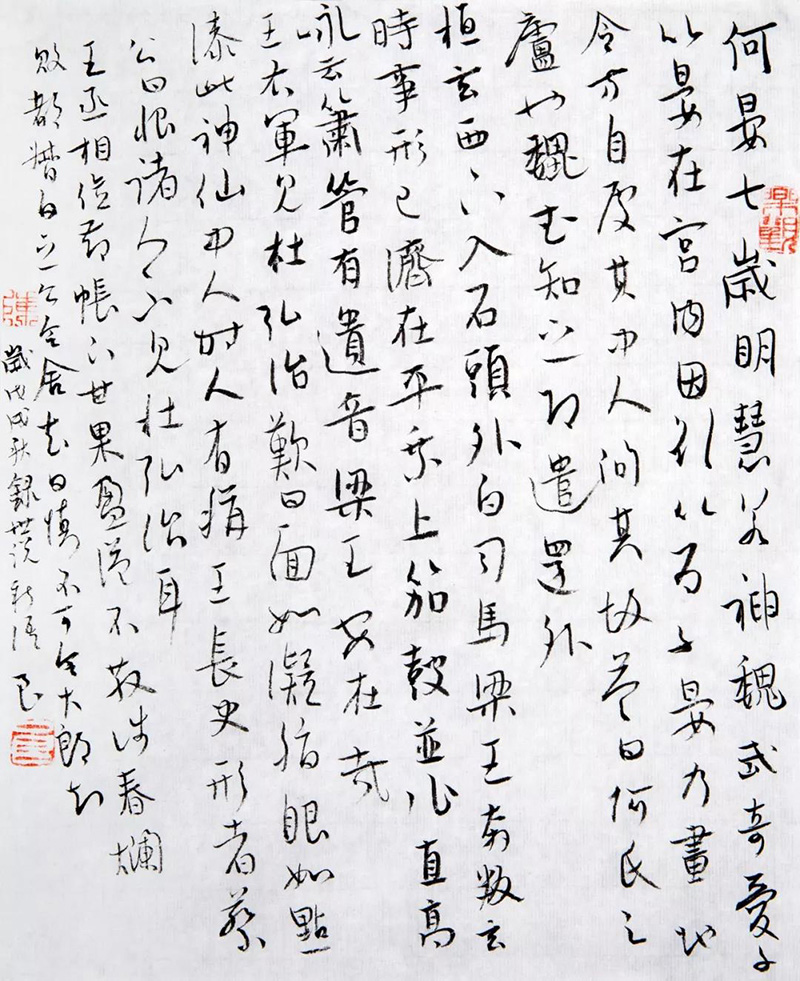 何晏七歲明慧若神魏武奇愛之
以晏在宮內因欲以為子晏乃畫地
令方自處其中人問其故答曰何氏之
廬也魏武知之即遣還外
桓玄西下入石頭外白司馬梁王奔叛玄
時事形已濟在平乘上笳鼓並作直高
詠云簫管有遺音梁王安在哉
王右軍見杜弘治歎曰面如凝脂眼如點
漆此神仙中人時人有稱王長史形者蔡
公曰恨諸人不見杜弘治耳
王丞相儉節帳下甘果盈溢不散涉春爛
敗都督白之公令舍去曰慎不可令大郎知
歲戊戌秋錄世說新語 良